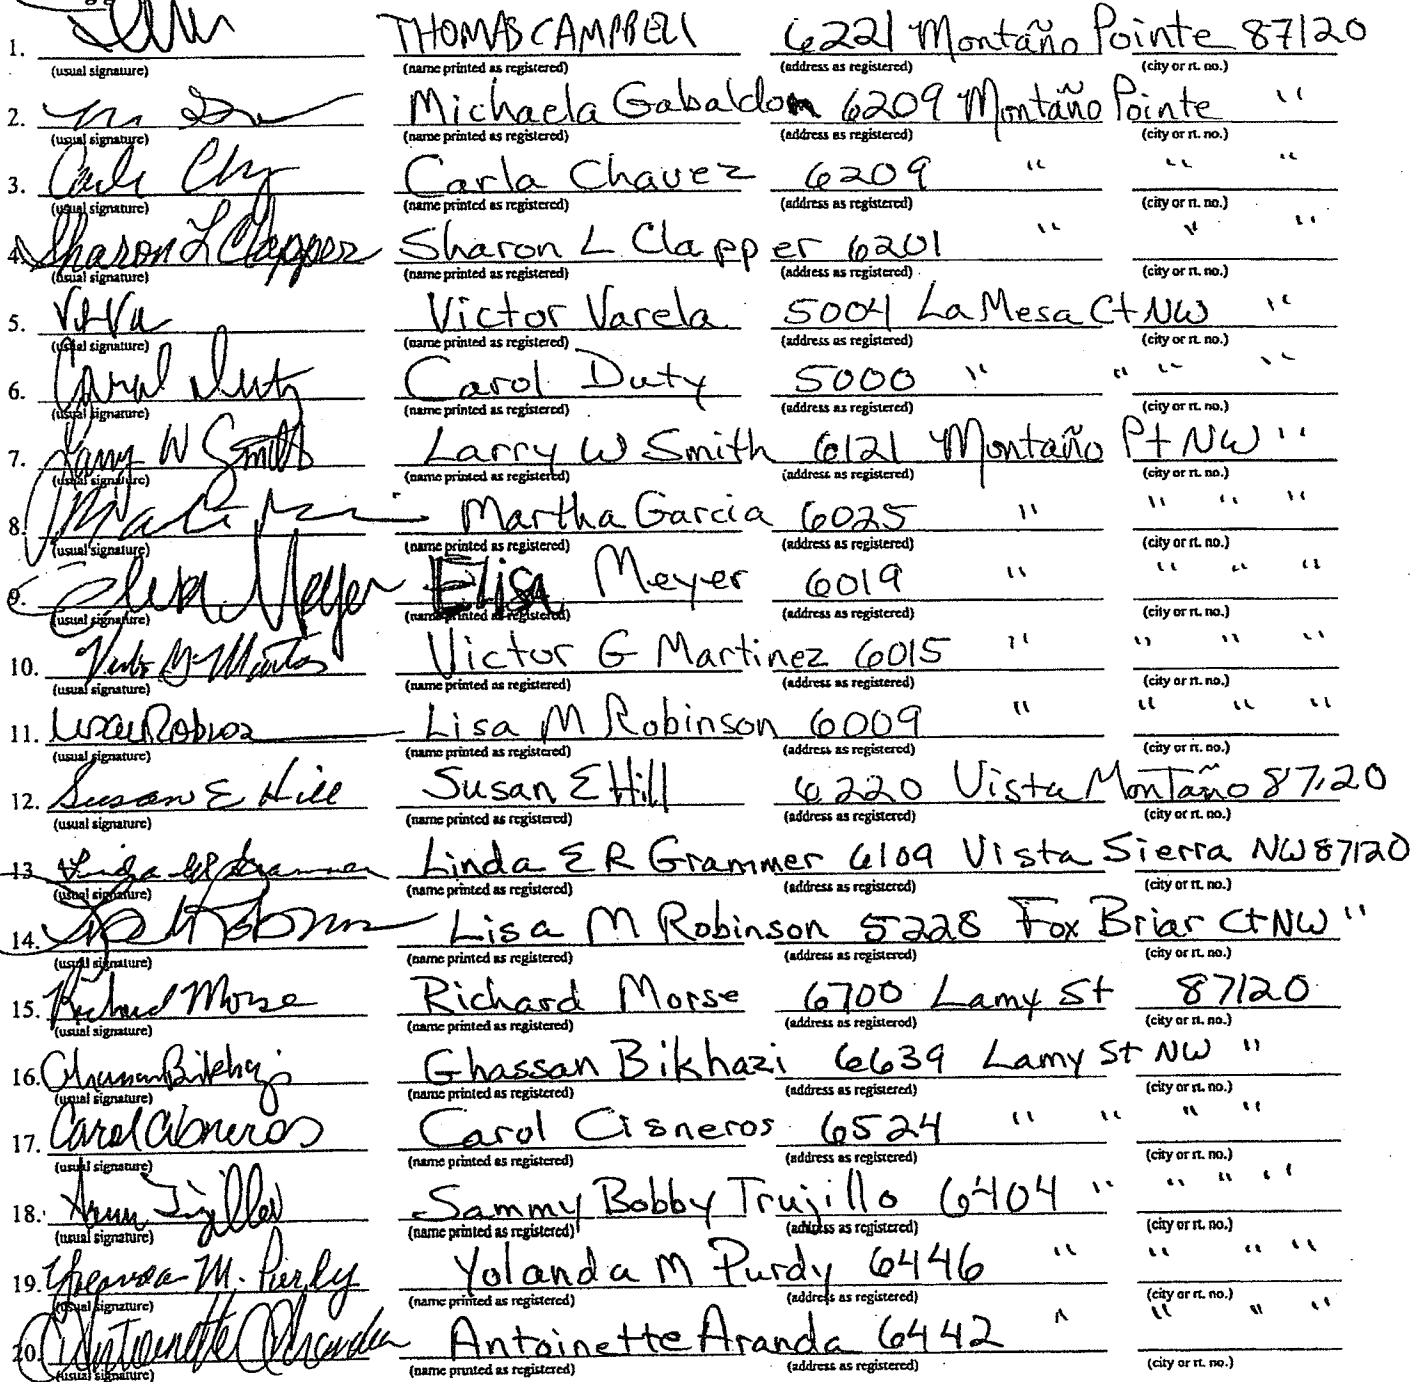 1. THOMAS CAMPBELL 6221 Montaño Pointe 87120
(usual signature) (name printed as registered) (address as registered) (city or rt. no.)
2. Michaela Gabaldon 6209 Montaño Pointe "
(usual signature) (name printed as registered) (address as registered) (city or rt. no.)
3. Carla Chavez 6209 " " "
(usual signature) (name printed as registered) (address as registered) (city or rt. no.)
4. Sharon L Clapper Sharon L Clapper 6201 " " "
(usual signature) (name printed as registered) (address as registered) (city or rt. no.)
5. Victor Varela 5004 La Mesa Ct NW "
(usual signature) (name printed as registered) (address as registered) (city or rt. no.)
6. Carol Duty Carol Duty 5000 " " " "
(usual signature) (name printed as registered) (address as registered) (city or rt. no.)
7. Larry W Smith Larry W Smith 6121 Montaño Pt NW "
(usual signature) (name printed as registered) (address as registered) (city or rt. no.)
8. Martha Garcia 6025 " " " "
(usual signature) (name printed as registered) (address as registered) (city or rt. no.)
9. Elisa Meyer Elisa Meyer 6019 " " " "
(usual signature) (name printed as registered) (address as registered) (city or rt. no.)
10. Victor G Martinez 6015 " " " "
(usual signature) (name printed as registered) (address as registered) (city or rt. no.)
11. Lisa M Robinson 6009 " " " "
(usual signature) (name printed as registered) (address as registered) (city or rt. no.)
12. Susan E Hill Susan E Hill 6220 Vista Montaño 87120
(usual signature) (name printed as registered) (address as registered) (city or rt. no.)
13. Linda E R Grammer Linda E R Grammer 6109 Vista Sierra NW 87120
(usual signature) (name printed as registered) (address as registered) (city or rt. no.)
14. Lisa M Robinson 5228 Fox Briar Ct NW "
(usual signature) (name printed as registered) (address as registered) (city or rt. no.)
15. Richard Morse Richard Morse 6700 Lamy St 87120
(usual signature) (name printed as registered) (address as registered) (city or rt. no.)
16. Ghassan Bikhazi Ghassan Bikhazi 6639 Lamy St NW "
(usual signature) (name printed as registered) (address as registered) (city or rt. no.)
17. Carol Cisneros Carol Cisneros 6524 " " " "
(usual signature) (name printed as registered) (address as registered) (city or rt. no.)
18. Sammy Bobby Trujillo 6404 " " " "
(usual signature) (name printed as registered) (address as registered) (city or rt. no.)
19. Yolanda M. Purdy Yolanda M Purdy 6446 " " " "
(usual signature) (name printed as registered) (address as registered) (city or rt. no.)
20. Antoinette Aranda Antoinette Aranda 6442 " " " "
(usual signature) (name printed as registered) (address as registered) (city or rt. no.)